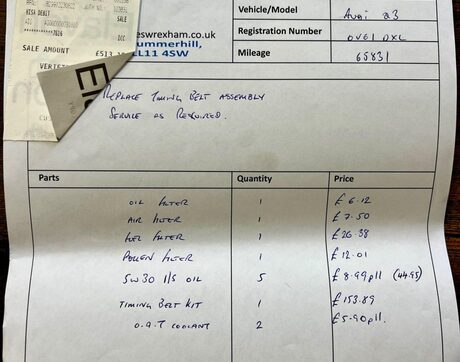 VISA DEBIT
SALE
ICC
SALE AMOUNT
£513.
swrexham.co.uk
ummerhill,
LL11 4SW
Vehicle/Model Audi a3
Registration Number
Mileage 65831
REPLACE TIMING BELT ASSEMBLY
SERVICE AS REQUIRED.
Parts Quantity Price
OIL FILTER 1 £6.12
AIR FILTER 1 £7.50
FUEL FILTER 1 £26.38
POLLEN FILTER 1 £12.01
5W30 l/s OIL 5 £8.99 pll (44.95)
TIMING BELT KIT 1 £153.89
O.A.T COOLANT 2 £5.90 pll.